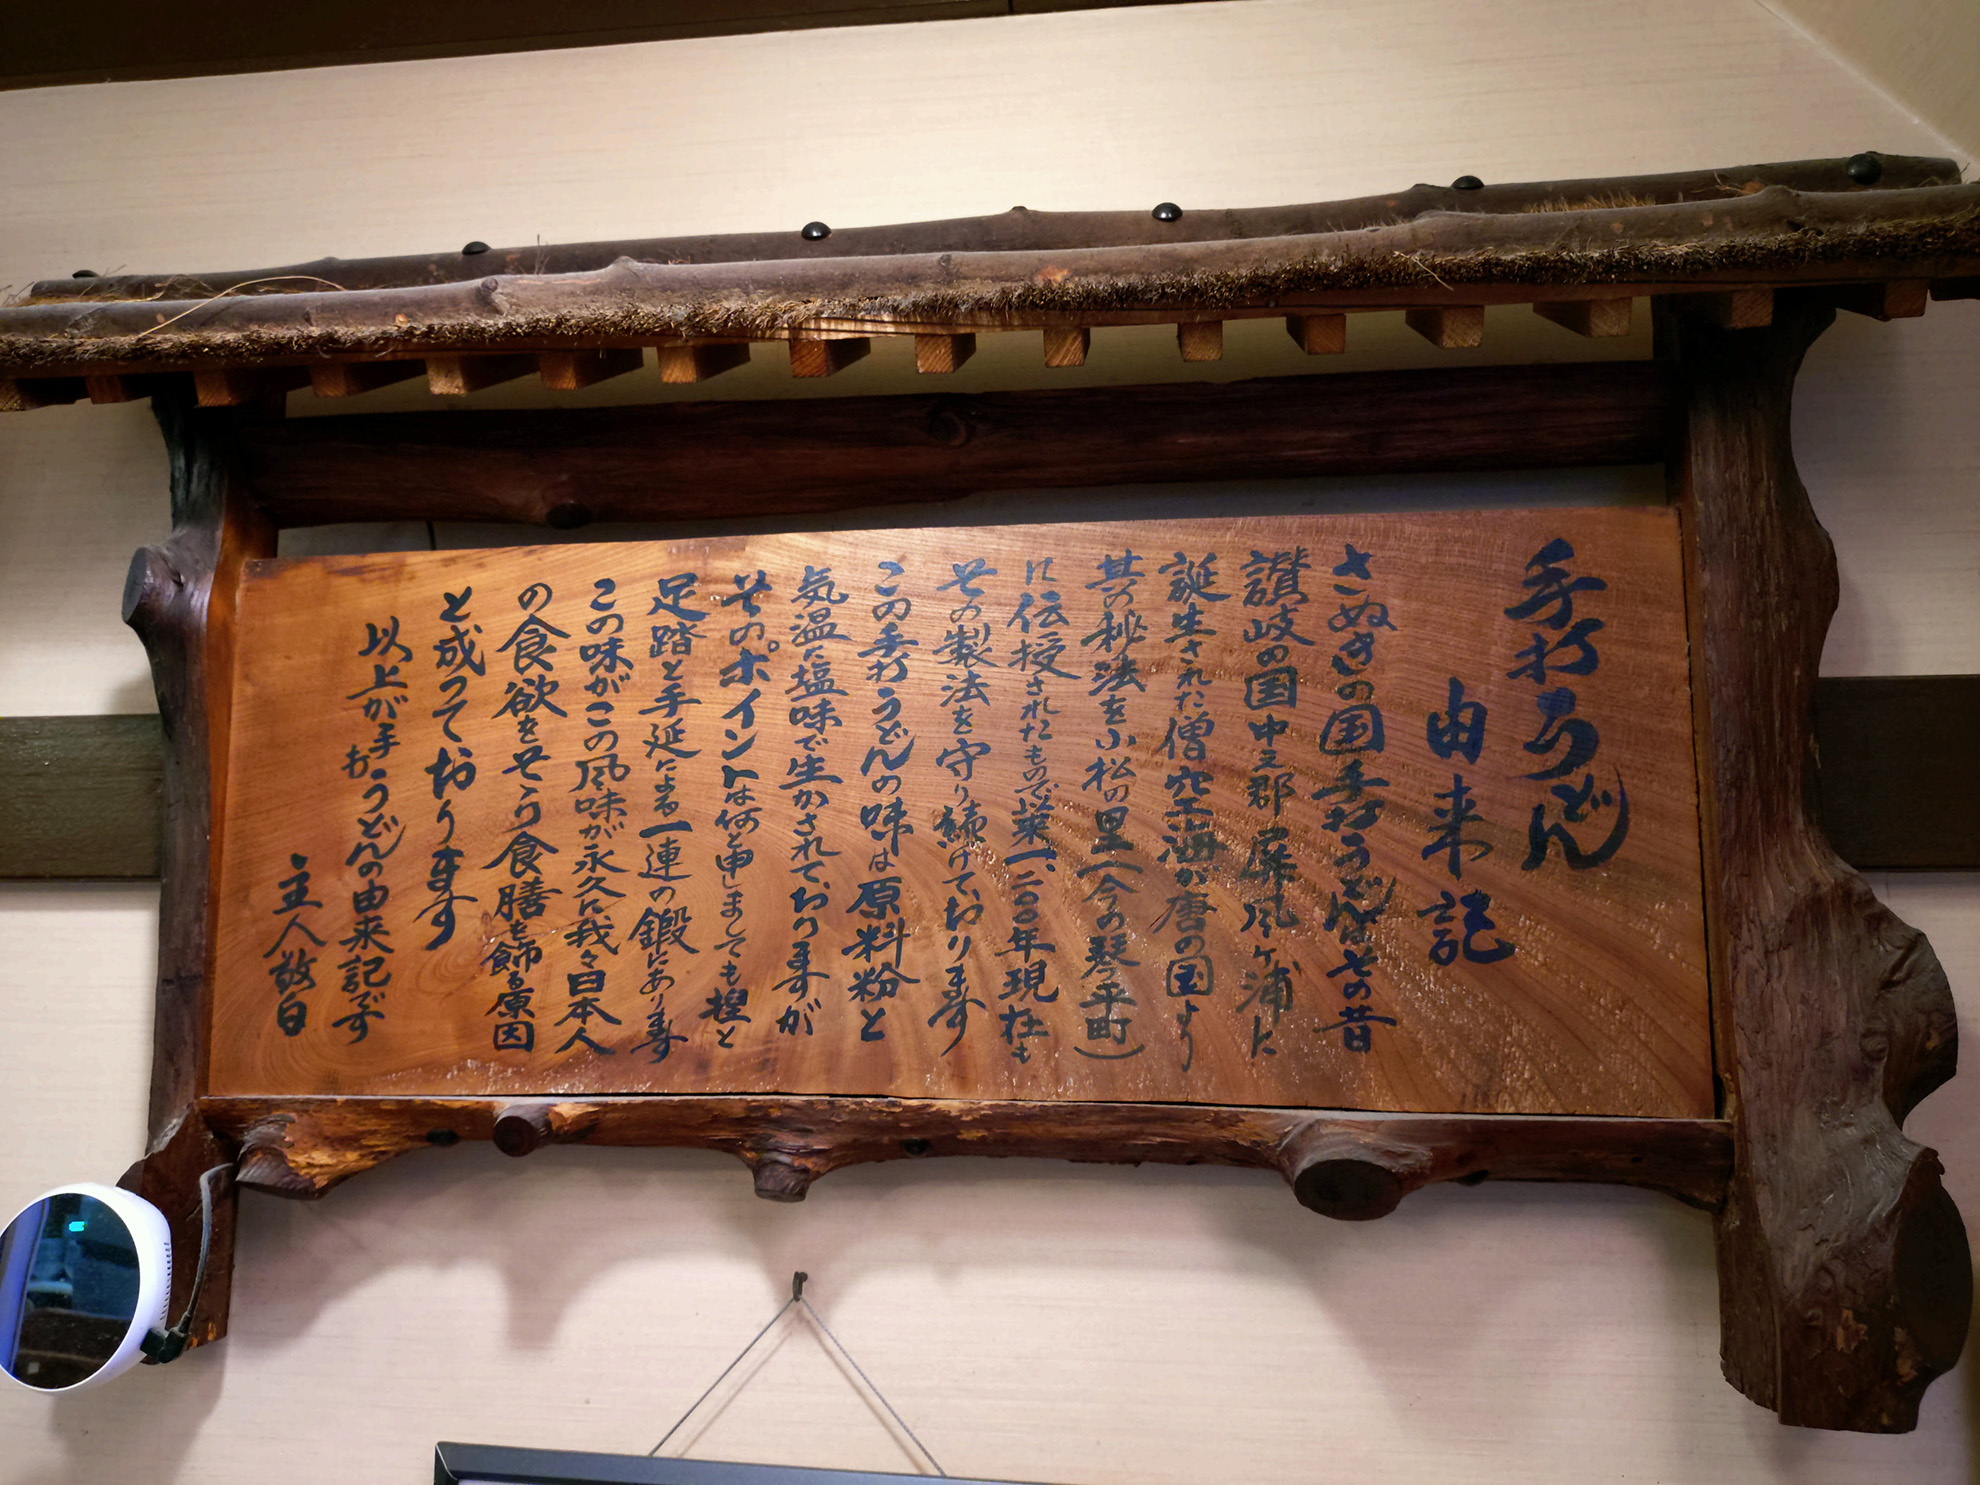 手打うどん
由来記
さぬきの国手打うどんはその昔
讃岐の国中之郡屏風ヶ浦に
誕生された僧空海が唐の国より
其の秘法を小松の里(今の琴平町)
に伝授されたもので以来一、二〇〇年現在も
その製法を守り続けております
この手打うどんの味は原料粉と
気温に塩味で生かされておりますが
そのポイントは何と申しましても捏と
足踏と手延による一連の鍛にあります
この味がこの風味が永久に我々日本人
の食欲をそそり食膳を飾る原因
と成つております
以上が手打うどんの由来記です
主人敬白